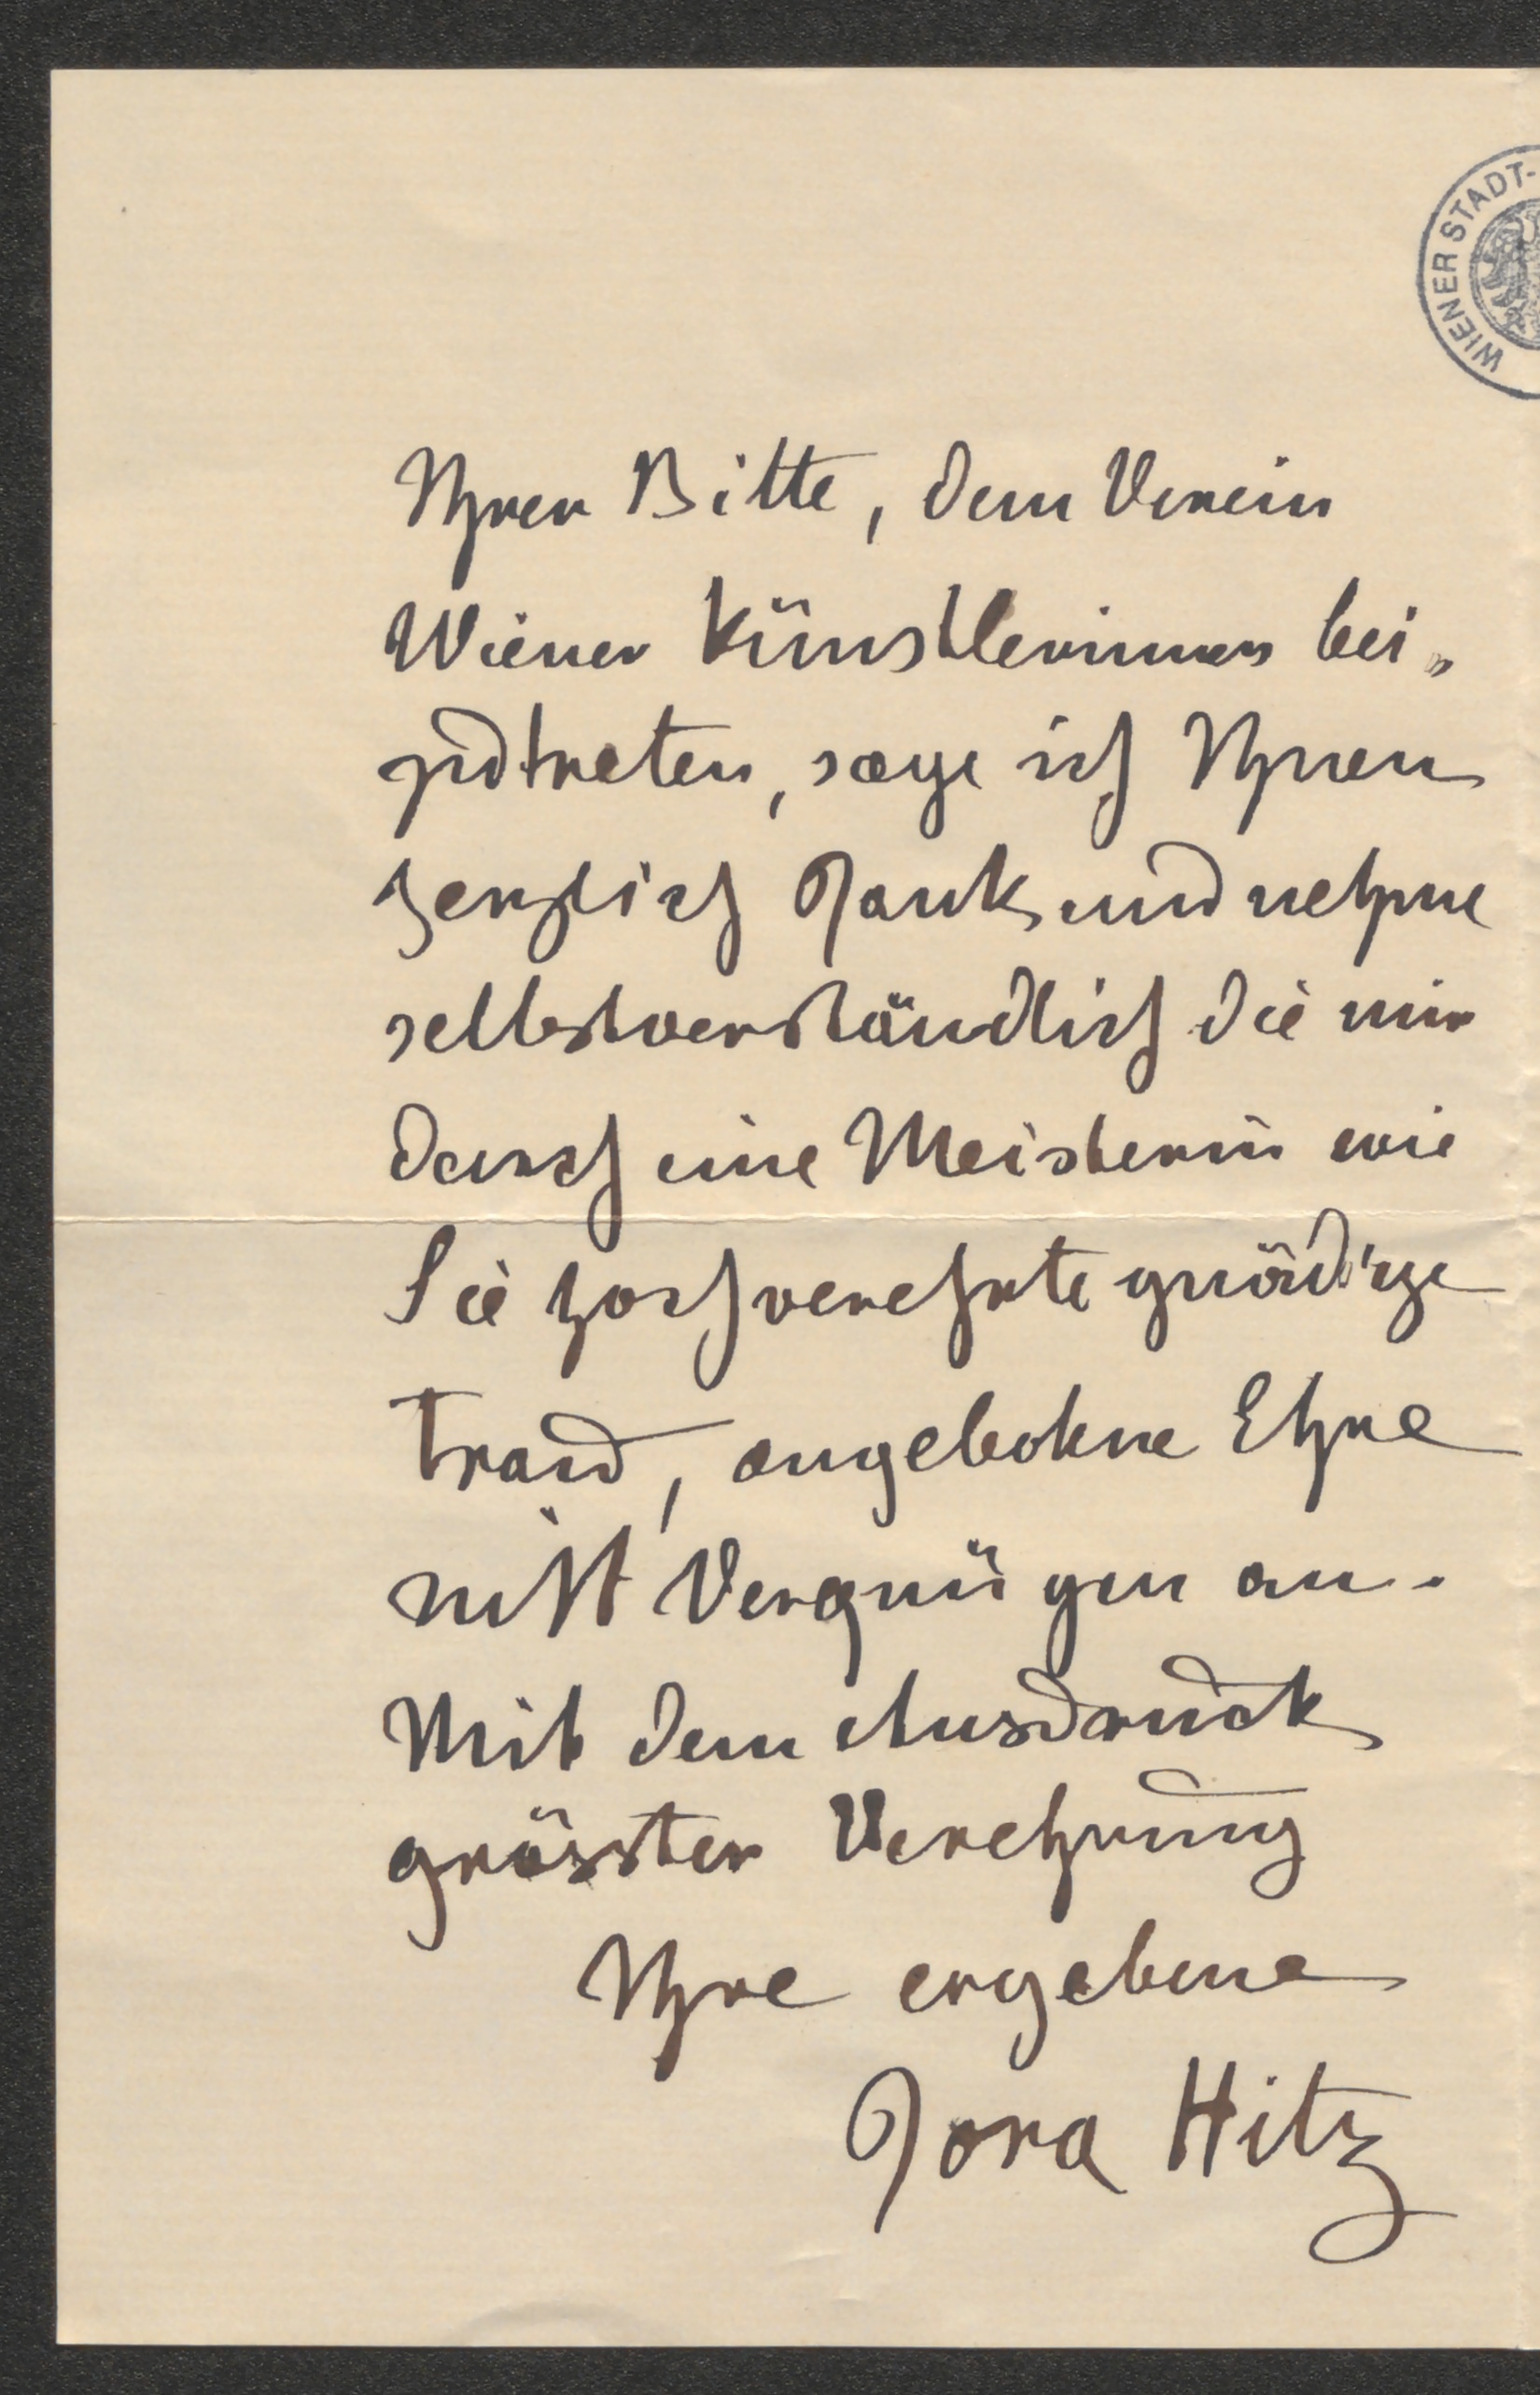 WIENER STADT-
Ihrer Bitte, dem Verein
Wiener Künstlerinnen bei„
zutreten, sage ich Ihnen
herzlich Dank und nehme
selbstverständlich die mir
durch eine Meisterin wie
Sie hochverehrte gnädige
Frau, angebotene Ehre
mit Vergnügen an.
Mit dem Ausdruck
grösster Verehrung
Ihre ergebene
Dora Hitz